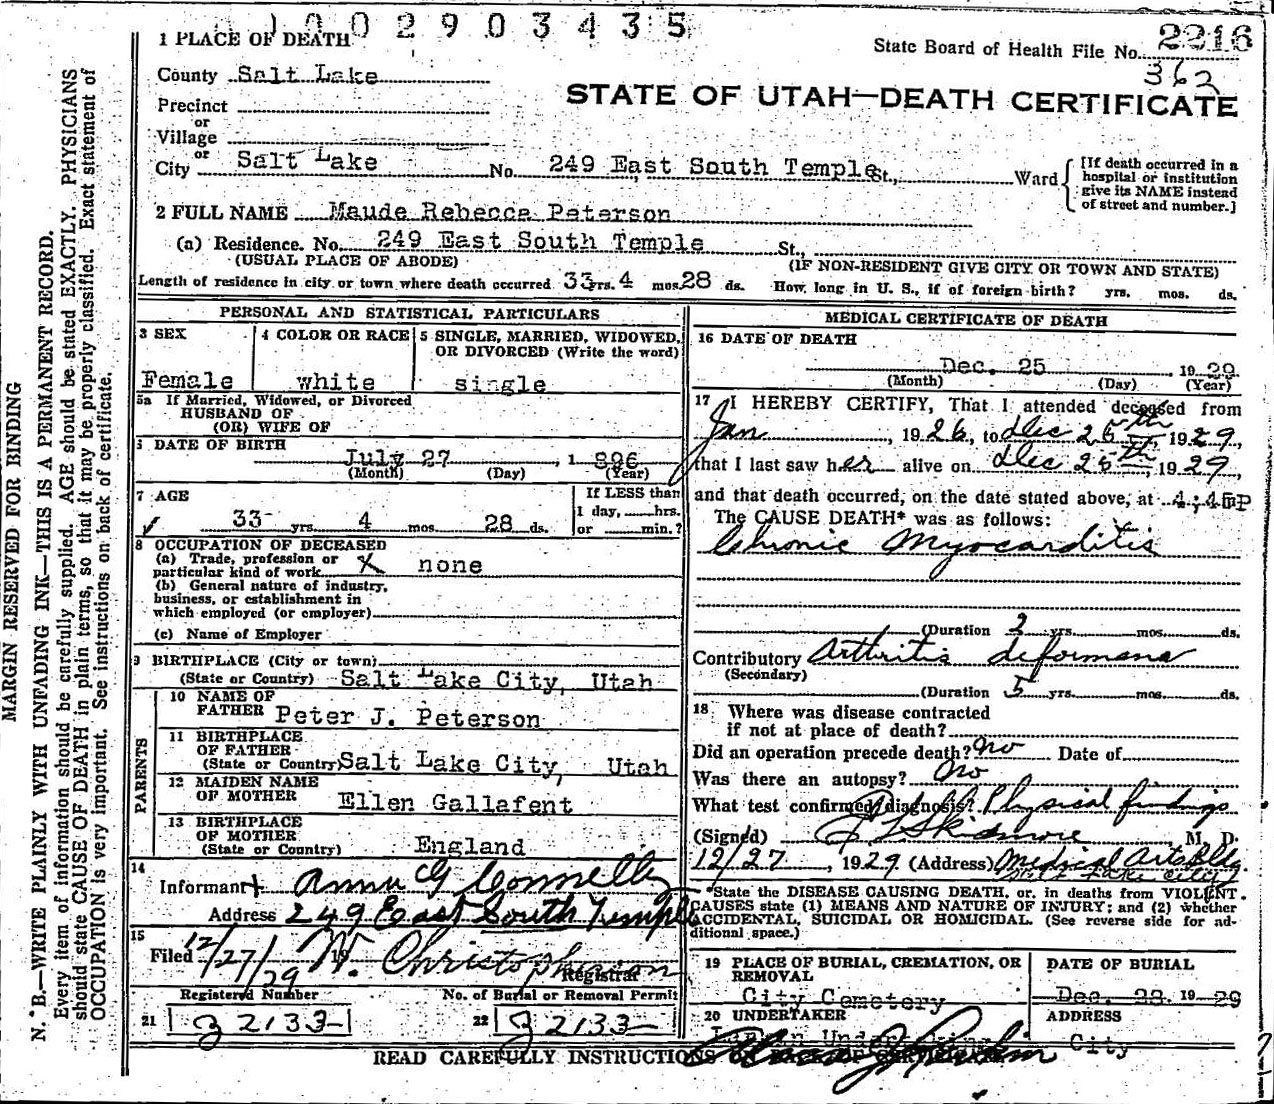 1002903435
1 PLACE OF DEATH
State Board of Health File No. 2216
362
County Salt Lake
STATE OF UTAH—DEATH CERTIFICATE
Precinct
or
Village
or
City Salt Lake No. 249 East South Temple St., Ward
[If death occurred in a
hospital or institution
give its NAME instead
of street and number.]
2 FULL NAME Maude Rebecca Peterson
(a) Residence. No. 249 East South Temple St.,
(USUAL PLACE OF ABODE) (IF NON-RESIDENT GIVE CITY OR TOWN AND STATE)
Length of residence in city or town where death occurred 33 yrs. 4 mos. 28 ds. How long in U. S., if of foreign birth? yrs. mos. ds.
PERSONAL AND STATISTICAL PARTICULARS
3 SEX
Female
4 COLOR OR RACE
white
5 SINGLE, MARRIED, WIDOWED,
OR DIVORCED (Write the word)
single
5a If Married, Widowed, or Divorced
HUSBAND OF
(OR) WIFE OF
6 DATE OF BIRTH
July 27, 1896
(Month) (Day) (Year)
7 AGE
33 yrs. 4 mos. 28 ds.
If LESS than
1 day, hrs.
or min.?
8 OCCUPATION OF DECEASED
(a) Trade, profession or
particular kind of work X none
(b) General nature of industry,
business, or establishment in
which employed (or employer)
(c) Name of Employer
9 BIRTHPLACE (City or town)
(State or Country) Salt Lake City, Utah
PARENTS
10 NAME OF
FATHER Peter J. Peterson
11 BIRTHPLACE
OF FATHER
(State or Country) Salt Lake City, Utah
12 MAIDEN NAME
OF MOTHER Ellen Gallafent
13 BIRTHPLACE
OF MOTHER
(State or Country) England
14
Informant Anna G Connelly
Address 249 East South Temple
15
Filed 12/27/29 19 W. Christopherson
Registrar
Registered Number No. of Burial or Removal Permit
21 J2133 22 J2133
MEDICAL CERTIFICATE OF DEATH
16 DATE OF DEATH
Dec. 25 1929
(Month) (Day) (Year)
17 I HEREBY CERTIFY, That I attended deceased from
Jan, 1926, to Dec 25th 1929,
that I last saw her alive on Dec 25th, 1929,
and that death occurred, on the date stated above, at 4:45P
The CAUSE DEATH* was as follows:
Chronic Myocarditis
(Duration 2 yrs. mos. ds.
Contributory Arthritis deformans
(Secondary)
(Duration 5 yrs. mos. ds.
18 Where was disease contracted
if not at place of death?
Did an operation precede death? no Date of
Was there an autopsy? no
What test confirmed diagnosis? Physical findings
(Signed) Skidmore M. D.
12/27, 1929 (Address) Medical Arts Bldg.
Salt Lake City
*State the DISEASE CAUSING DEATH, or, in deaths from VIOLENT
CAUSES state (1) MEANS AND NATURE OF INJURY; and (2) whether
ACCIDENTAL, SUICIDAL OR HOMICIDAL. (See reverse side for ad-
ditional space.)
19 PLACE OF BURIAL, CREMATION, OR
REMOVAL
City Cemetery
DATE OF BURIAL
Dec. 28 1929
20 UNDERTAKER
ADDRESS
City
READ CAREFULLY INSTRUCTIONS
MARGIN RESERVED FOR BINDING
N. B.—WRITE PLAINLY WITH UNFADING INK—THIS IS A PERMANENT RECORD.
Every item of information should be carefully supplied. AGE should be stated EXACTLY. PHYSICIANS
should state CAUSE OF DEATH in plain terms, so that it may be properly classified. Exact statement of
OCCUPATION is very important. See instructions on back of certificate.